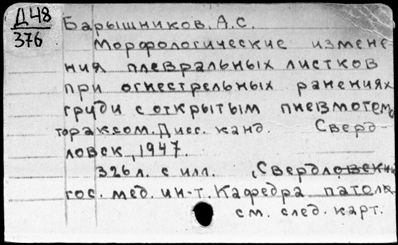 Д48
376
Барышников. А.С.
Морфологические измене
ния плевральных листков
при огнестрельных ранениях
груди с открытым пневмотем
тораксом. Дисс. канд. Сверд-
ловск, 1947.
326 л. с илл. (Свердловский
гос. мед. ин-т. Кафедра патоло
см. след. карт.